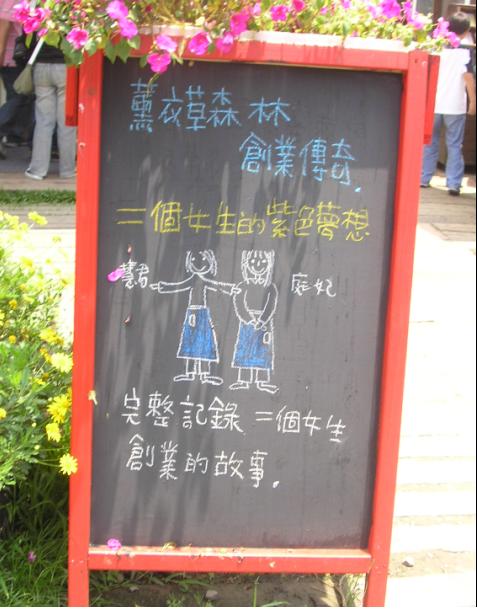 薰衣草森林
創業傳奇.
二個女生的紫色夢想
慧君
庭妃
完整記錄 二個女生
創業的故事.